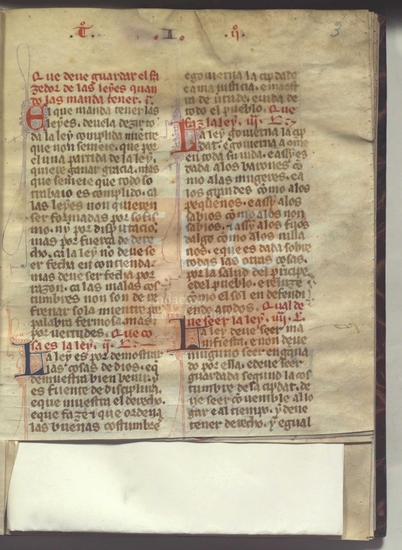 .T. .I. .q.
3
Que deue guardar el fa
zedor de las leyes quan
do las manda tener. i.
El que manda tener las
leyes, deuela dezir to
da la ley complida miente
que non semeie, que por
el una partida de la ley,
quiere ganar gracia, mas
que semeie que todo so
trabaio es complido. ca
las leyes non quieren
ser formadas por sofis
mo, ny por disputacio,
mas por fuerça de dere
cho. ca la ley no deue se
er fecha en contienda.
mas deue ser fecha por
razon. ca las malas cos
tumbres non son de re
frenar sola miente por
palabra fermosa, mas
por uertudes. Que co
sa es la ley. ii. L.
La ley es por demostrar
las cosas de dios, et
demuestra bien beuir, y
es fuente de disciplina,
e que muestra el derecho,
e que faze e que ordena
las buenas costumbres
e gouierna la cipdade
e ama iusticia, e maestra
de uirtude, e uida de
todo el pueblo. Que
faz la ley. iii. L.
La ley gouierna la cip
dat, e gouierna a ome
en toda su uida, e assi es
dada a los barones co
mo a las mugeres, e a
los grandes como a los
pequenos, e assi a los
sabios como a los non
sabios, e assi a los fijos
dalgo como a los uilla
nos, e que es dada sobre
todas las otras cosas,
por la salud del principe
e del pueblo, e reluze
como el sol en defendi
endo a todos. Qual de
ue seer la ley. iiii. L.
La ley deue seer ma
nifiesta, e non deue
ninguno seer engana
do por ella, e deue seer
guardada segund la cos
tumbre de la cipdat, de
ue seer conuenible al lo
gar e al tiempo, y deue
tener derecho, y egual